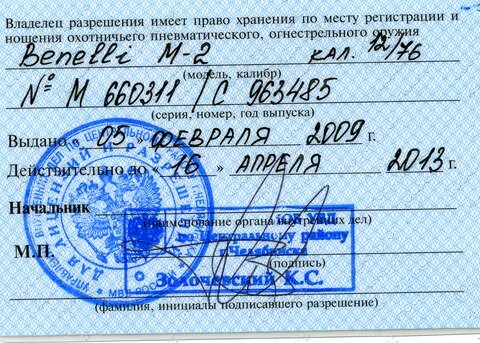 Владелец разрешения имеет право хранения по месту регистрации и
ношения охотничьего пневматического, огнестрельного оружия
Benelli М-2 кал. 12/76
(модель, калибр)
№ М 660311 / С 963485
(серия, номер, год выпуска)
Выдано « 05 » ФЕВРАЛЯ 2009 г.
Действительно до « 16 » АПРЕЛЯ 2013 г.
Начальник
(наименование органа внутренних дел)
по Центральному району
г.Челябинска
М.П.
(подпись)
Золочевский К.С.
(фамилия, инициалы подписавшего разрешение)